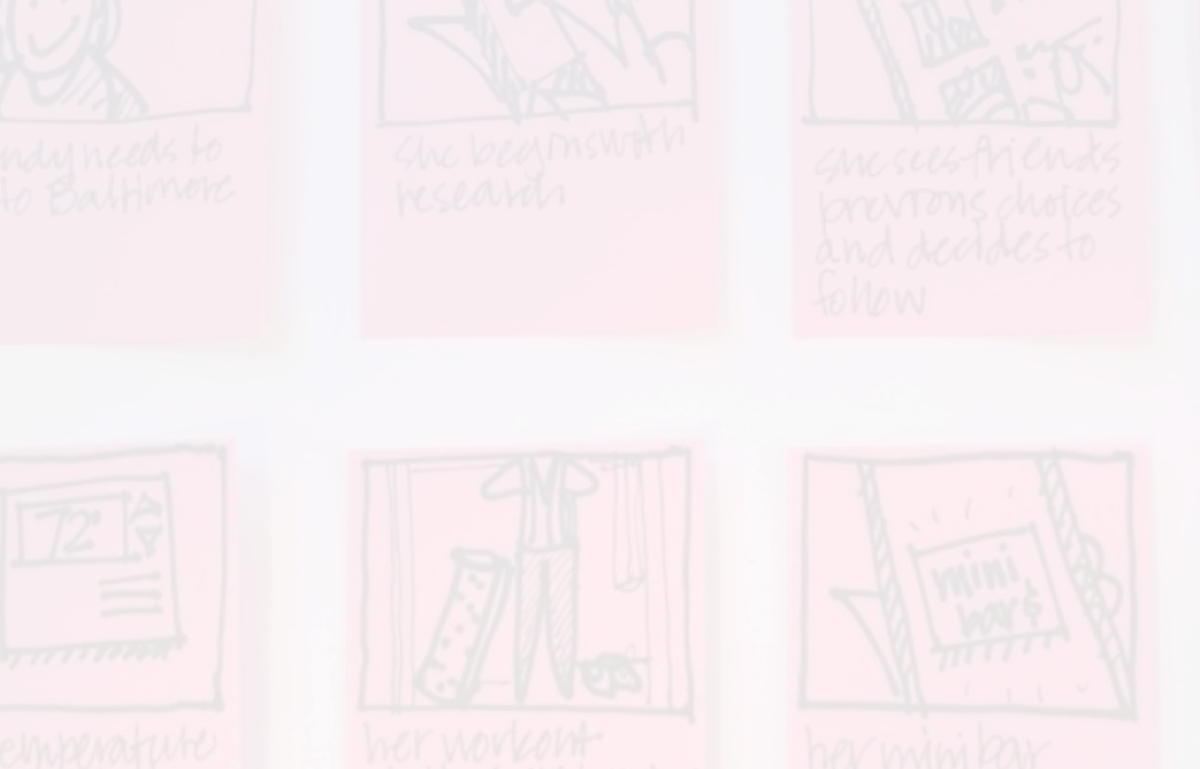 ndy needs to
to Baltimore
she begins with
research
she sees friends
previous choices
and decides to
follow
72°
emperature
her workout
mini
bar
her mini bar